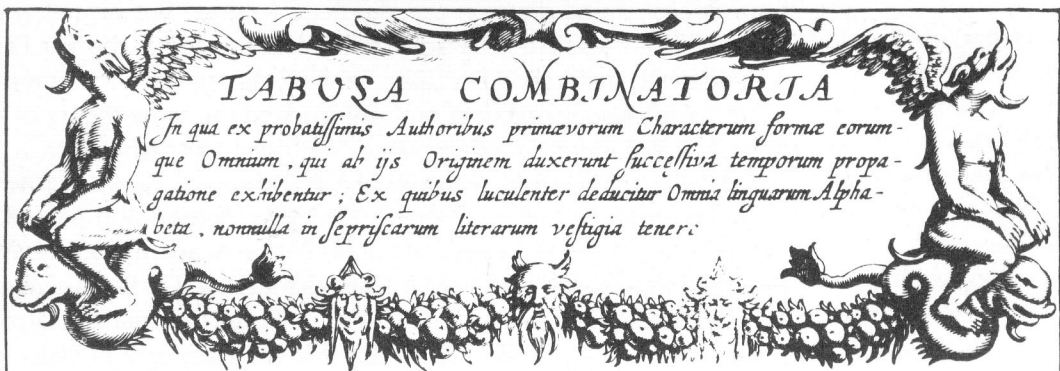 TABULA COMBINATORIA
In qua ex probatissimis Authoribus primævorum Characterum formæ eorum-
que Omnium, qui ab ijs Originem duxerunt successiva temporum propa-
gatione exhibentur; Ex quibus luculenter deducitur Omnia linguarum Alpha-
beta, nonnulla in se priscarum literarum vestigia tenere